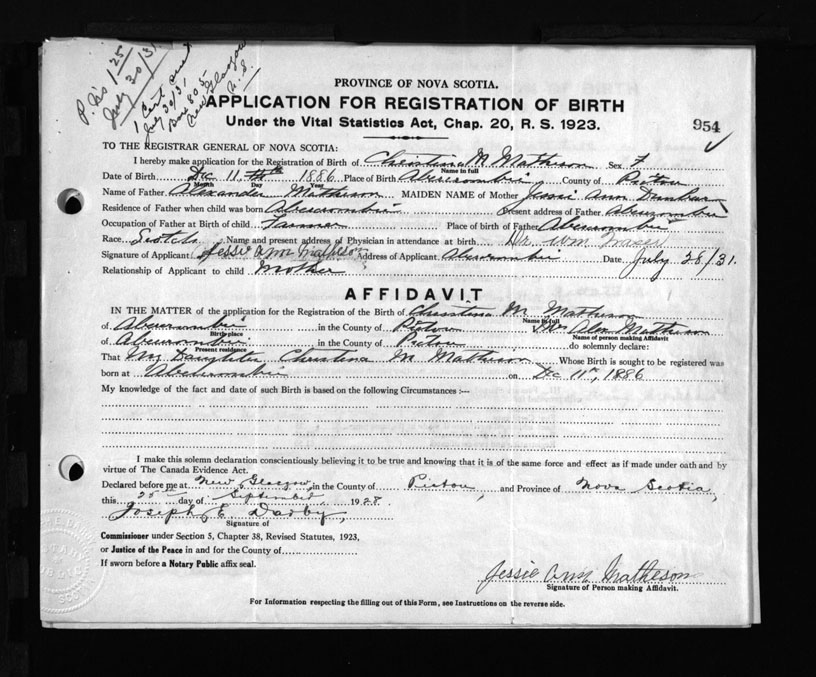 P. No 125
July 30/31
1 Cert. sent
July 30/31
Box 805
New Glasgow
N.S.
PROVINCE OF NOVA SCOTIA.
APPLICATION FOR REGISTRATION OF BIRTH
Under the Vital Statistics Act, Chap. 20, R. S. 1923.
954
TO THE REGISTRAR GENERAL OF NOVA SCOTIA:
I hereby make application for the Registration of Birth of Christina M Matheson Sex F
Name in full
Date of Birth Dec 11th 1886 Place of Birth Abercrombie County of Pictou
Month Day Year
Name of Father Alexander Matheson MAIDEN NAME of Mother Jessie Ann Dunbar
Residence of Father when child was born Abercrombie Present address of Father Abercrombie
Occupation of Father at Birth of child Farmer Place of birth of Father Abercrombie
Race Scotch Name and present address of Physician in attendance at birth Dr Wm Fraser
Signature of Applicant Jessie Ann Matheson Address of Applicant Abercrombie Date July 28/31.
Relationship of Applicant to child Mother
AFFIDAVIT
IN THE MATTER of the application for the Registration of the Birth of Christina M. Matheson
Name in full
of Abercrombie in the County of Pictou I, Mrs Alex Matheson
Birth place Name of person making Affidavit
of Abercrombie in the County of Pictou do solemnly declare:
Present residence
That My Daughter Christina M Matheson Whose Birth is sought to be registered was
born at Abercrombie on Dec 11th, 1886
My knowledge of the fact and date of such Birth is based on the following Circumstances :—
I make this solemn declaration conscientiously believing it to be true and knowing that it is of the same force and effect as if made under oath and by
virtue of The Canada Evidence Act.
Declared before me at New Glasgow in the County of Pictou, and Province of Nova Scotia,
this 25th day of September 1928
Joseph E. Darby,
Signature of
Commissioner under Section 5, Chapter 38, Revised Statutes, 1923,
or Justice of the Peace in and for the County of
If sworn before a Notary Public affix seal.
Jessie Ann Matheson
Signature of Person making Affidavit.
For Information respecting the filling out of this Form, see Instructions on the reverse side.